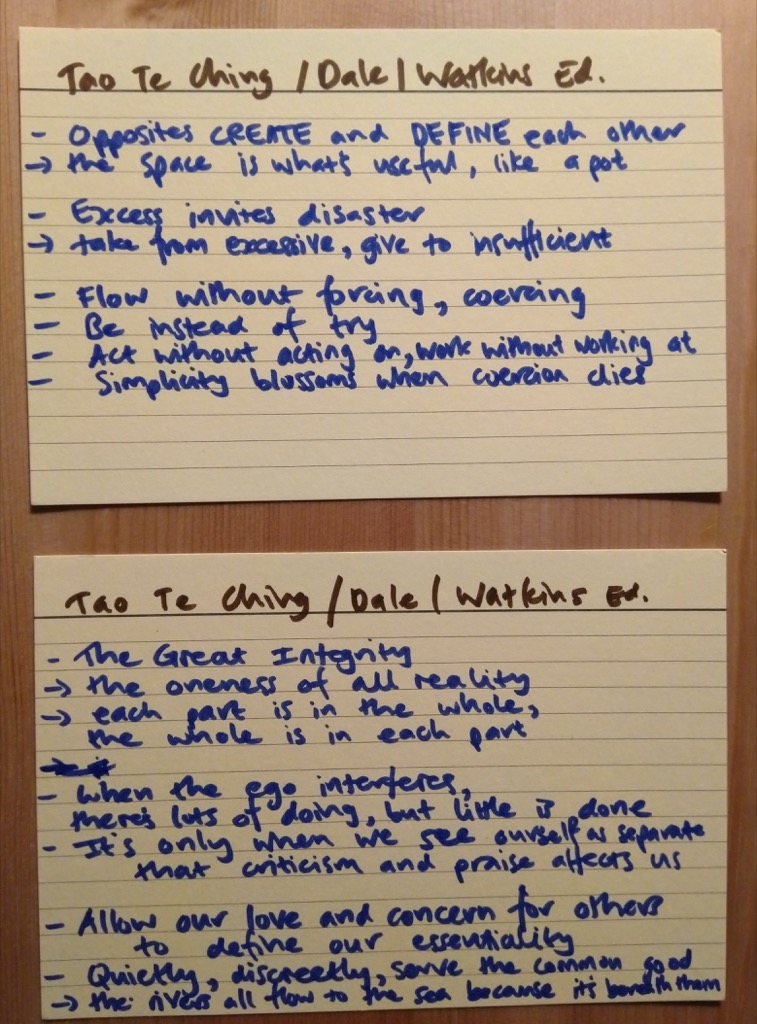 Tao Te Ching / Dale / Watkins Ed.
- Opposites CREATE and DEFINE each other
→ the space is what's useful, like a pot
- Excess invites disaster
→ take from excessive, give to insufficient
- Flow without forcing, coercing
- Be instead of try
- Act without acting on, work without working at
- Simplicity blossoms when coercion dies
Tao Te Ching / Dale / Watkins Ed.
- The Great Integrity
→ the oneness of all reality
→ each part is in the whole,
the whole is in each part
→
- When the ego interferes,
there's lots of doing, but little is done
- It's only when we see ourself as separate
that criticism and praise affects us
- Allow our love and concern for others
to define our essentiality
- Quietly, discreetly, serve the common good
→ the rivers all flow to the sea because it's beneath them